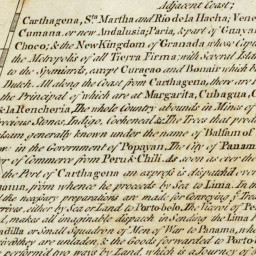 Adjacent Coast;
Carthagena, Sta. Martha and Rio de la Hacha; Vene
Cumana, or new Andalusia, Paria, & part of Guayan
Choco; & the New Kingdom of Granada whose Capit
the Metropolis of all Tierra Firma; with Several Islan
to the Spaniards, except Curaçao and Bonair which b
Dutch. All along the Coast from Carthagena, there are
the Principal of which are at Margarita, Cubagua, C
& la Rencheria. The whole Country abounds in Mines of
recious Stones, Indigo, Cochoneal & the Trees that pro
lsam generally known under the name of Balsam of
w in the Government of Popayan. The City of Panam
r of Commerce from Peru & Chili. As soon as ever the
the Port of Carthagena an express is dispatch'd over
anama, from whence he proceeds by Sea to Lima. In th
l the necessary preparations are made for Conveying ye Trea
arrives, either by Sea or Land to Porto-belo. The Viceroy of Per
d, makes all imaginable dispatch in Sending the Lima
adilla or Small Squadron of Men of War to Panama, whe
they are unladen, & the Goods forwarded to Porto-
performd two ways by Land, which is a Journey of